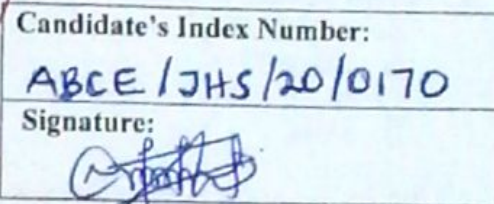 Candidate's Index Number:
ABCE/JHS/20/0170
Signature: